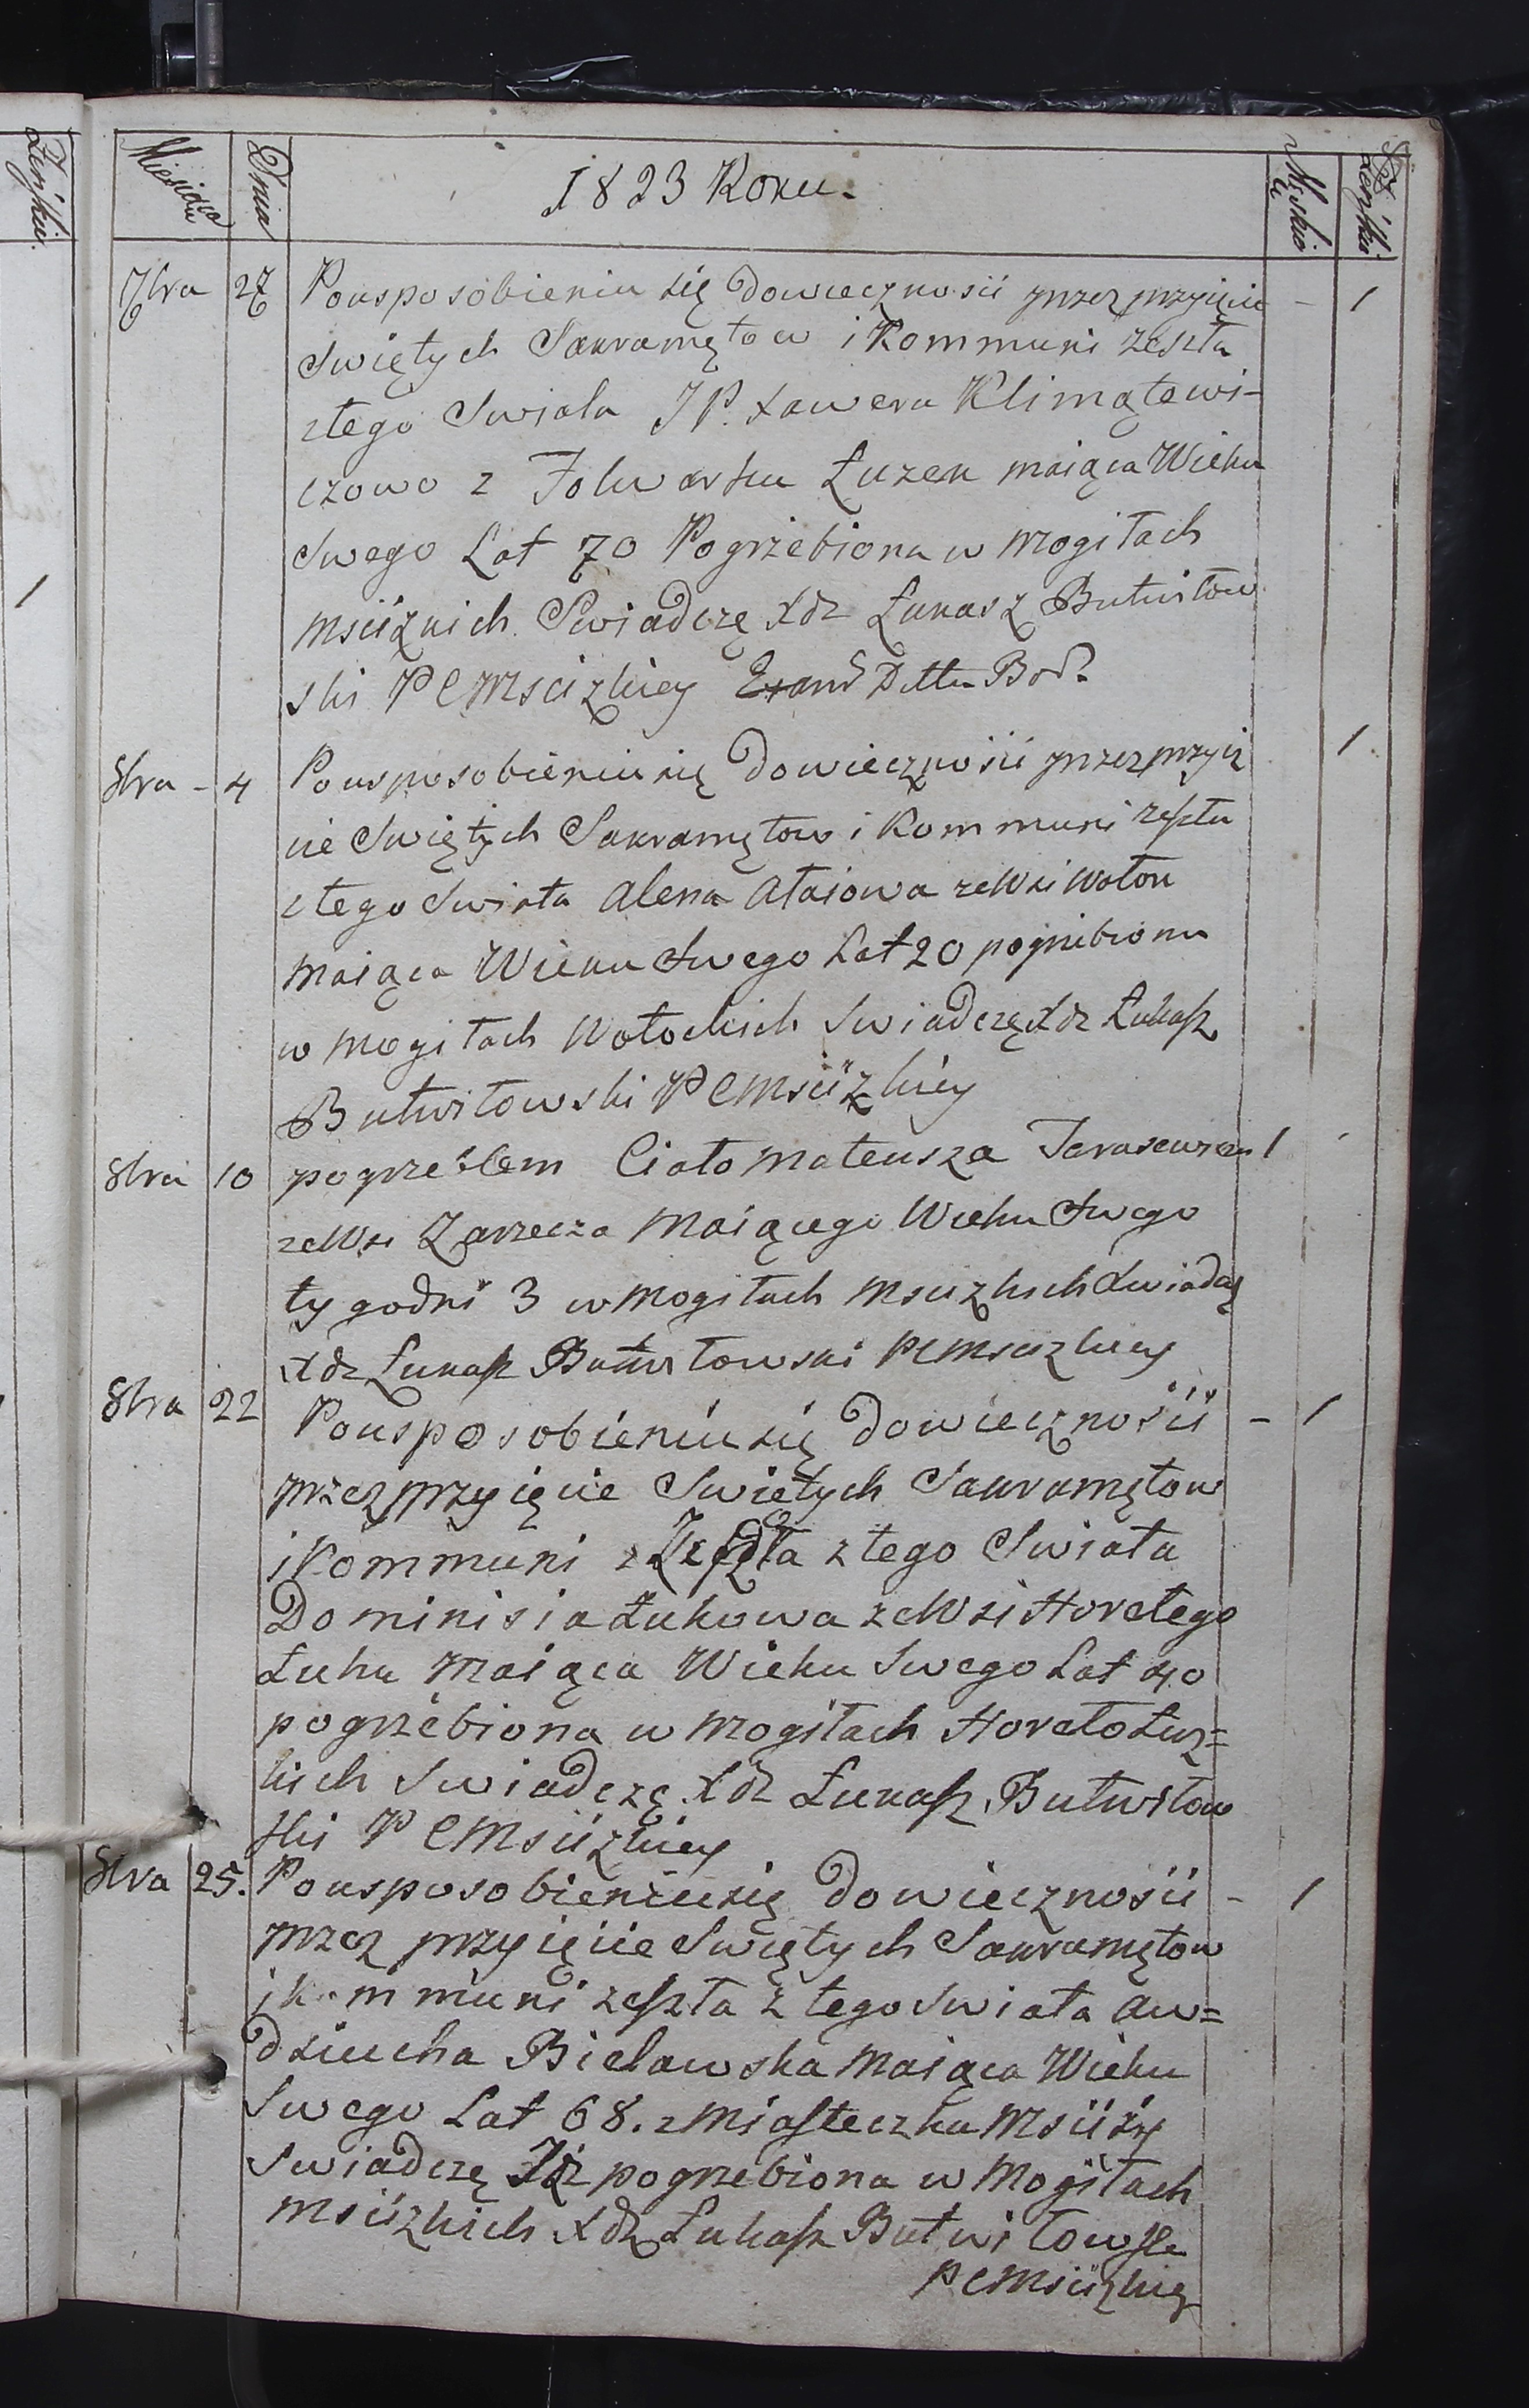 Żeńskiej.
Miesiąca Dnia 1823 Roku. Męskiej Płeć Żeńskiej
7bra 27 Pousposobieniu się dowieczności przez przyięcie - 1
Swiętych Sakramętow i Kommuni zeszła
ztego Swiata JP. Xawera Klimątewi-
czowo z Folwarku Łuzek maiąca Wieku
Swego Lat 70 Pogrzebiona w Mogiłach
Mściżkich Swiadczę Xdz Łukasz Butwiłow
ski PCMscizkiey
8bra - 4 Pousposobieniu się dowieczności przez przyię 1
cie Swiętych Sakramętow i Kommuni zeszła
ztego Swiata Alena Ataiowa zeWsi Wołok
Maiąca Wieku Swego Lat 20 pogrzebiona
w Mogiłach Wołockich Swiadczę Xdz Łukasz
Butwiłowski PCMściżkiey
8bra 10 pogrzebłem Ciało Mateusza Tarasewicza 1
zeWsi Zarzecza Maiącego Wieku Swego
tygodni 3 w Mogiłach Mscizkich Swiadczę
Xdz Łukasz Butwiłowski PCMscizkiey
8bra 22 Pousposobieniu się dowieczności - 1
przez przyięcie Swiętych Sakramętow
i Kommuni zeszła ztego Swiata
Dominisia Łukowa zeWsi Horełego
Łuhu Maiąca Wieku Swego Lat 40
pogrzebiona w Mogiłach Horełołuz=
kich Swiadczę Xdz Łukasz Butwiłow
ski PCMściżkiey
8bra 25. Pousposobieniu się dowieczności - 1
przez przyięcie Swiętych Sakramętow
i kommuni zeszła z tego Swiata Aw=
dziucha Bielawska Maiąca Wieku
Swego Lat 68. z Miasteczka Msciży
Swiadczę Iż pogrzebiona w Mogiłach
Mściżkich Xdz Łukasz Butwiłowski
PCMściżkiey